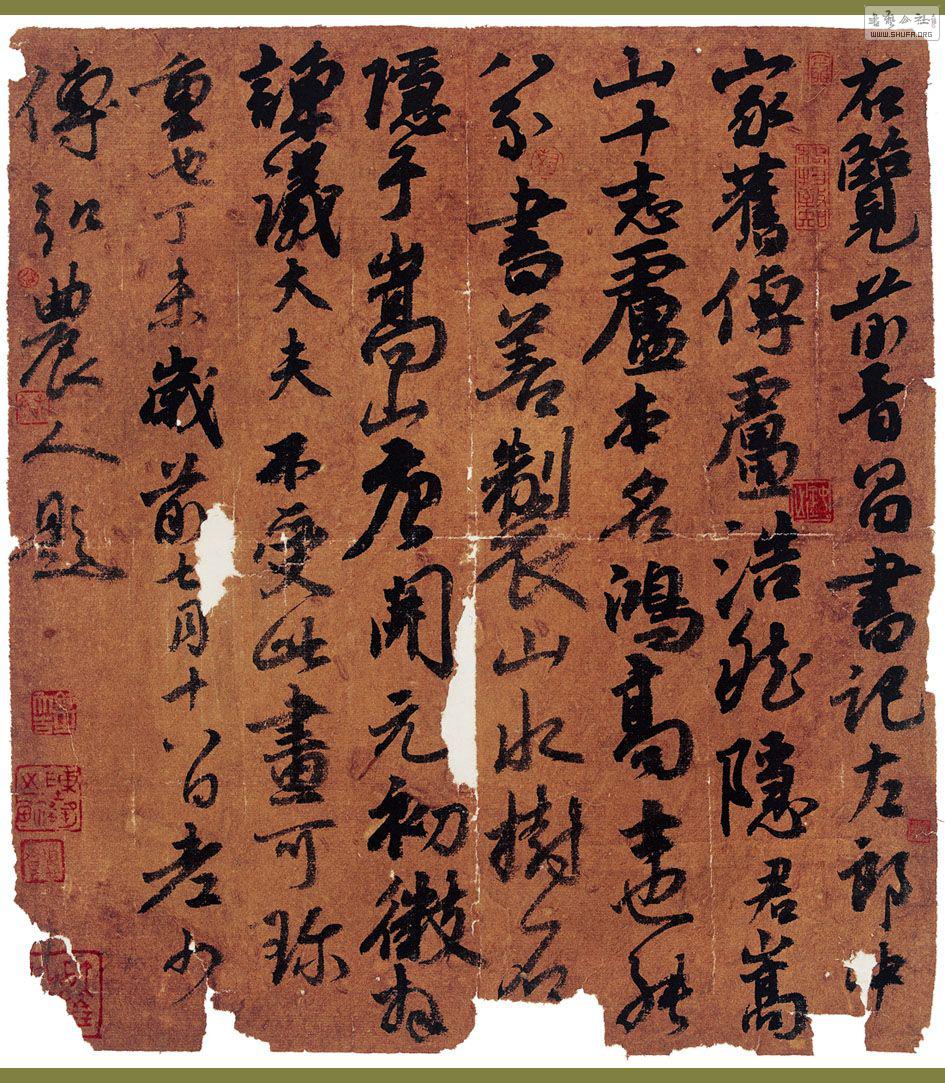 右覽前晉昌書記左郎中
家舊傳盧浩然隱君嵩
山十志盧本名鴻高士也能
八分書善製山水樹石
隱于嵩山唐開元初徵為
諫議大夫不受此畫可珎
重也丁未歲前七月十八日老少
傅弘農人題
書藝公社
WWW.SHUFA.ORG